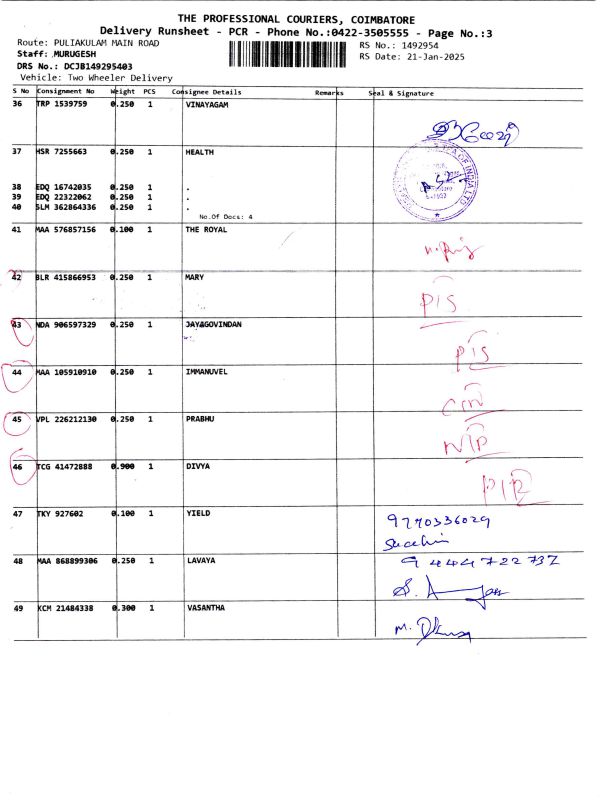 THE PROFESSIONAL COURIERS, COIMBATORE
Delivery Runsheet - PCR - Phone No.:0422-3505555 - Page No.:3
Route: PULIAKULAM MAIN ROAD
RS No.: 1492954
Staff: MURUGESH
RS Date: 21-Jan-2025
DRS No.: DCJB149295403
Vehicle: Two Wheeler Delivery
S No Consignment No Weight PCS Consignee Details Remarks Seal & Signature
36 TRP 1539759 0.250 1 VINAYAGAM
37 HSR 7255663 0.250 1 HEALTH
38 EDQ 16742035 0.250 1 .
39 EDQ 22322062 0.250 1 .
40 SLM 362864336 0.250 1 .
No.Of Docs: 4
41 MAA 576857156 0.100 1 THE ROYAL
42 BLR 415866953 0.250 1 MARY
PIS
43 NDA 906597329 0.250 1 JAYAGOVINDAN
PIS
44 MAA 105910910 0.250 1 IMMANUVEL
45 VPL 226212130 0.250 1 PRABHU
46 TCG 41472888 0.900 1 DIVYA
47 TKY 927602 0.100 1 YIELD
9770336029
48 MAA 868899306 0.250 1 LAVAYA
9444722737
49 KCM 21484338 0.300 1 VASANTHA